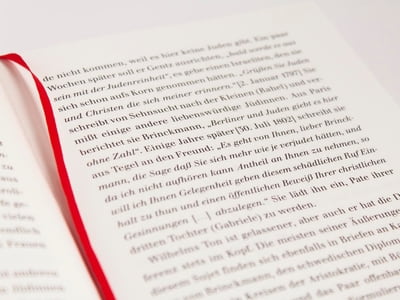 de nicht kommen, weil es hier keine Juden gibt. Ein paar
Wochen später soll er Gentz ausrichten, „bald werde es aus
sein mit der Judenreinheit“, es gebe einen Israeliten, den sie
sich schon aufs Korn genommen hätten. „Grüßen Sie Juden
und Christen die sich meiner erinnern.“[2. Januar 1797] Sie
schreibt von Sehnsucht nach der Kleinen (Rahel) und ver-
mißt einige andere liebenswürdige Jüdinnen. Aus Paris
berichtet sie Brinckmann, „Berliner und Juden giebt es hier
ohne Zahl“. Einige Jahre später [30. Juli 1802] schreibt sie
aus Tegel an den Freund: „Es geht von Ihnen, lieber Brinck-
mann, die Sage daß Sie sich mehr wie je verjudet hätten, und
da ich nicht aufhören kann Antheil an Ihnen zu nehmen, so
will ich Ihnen Gelegenheit geben diesem schädlichen Ruf Ein-
halt zu thun und einen öffentlichen Beweiß Ihrer christlichen
Gesinnungen [...] abzulegen.“ Sie lädt ihn ein, Pate ihrer
dritten Tochter (Gabriele) zu werden.
Wilhelms Ton ist gelassener, aber auch er hat die D
ferenz stets im Kopf. Die meisten seiner Äußerunge
diesem Sujet finden sich ebenfalls in Briefen an Ka
von Brinckmann, den schwedischen Diplom
Kreisen der Aristokratie, mit Bü
und das Paar offenba